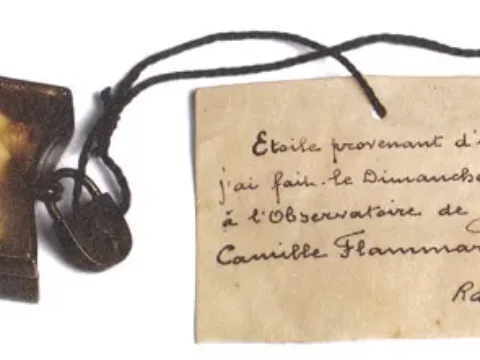 Etoile provenant d'
j'ai fait le Dimanche
à l'Observatoire de
Camille Flammar
Ra